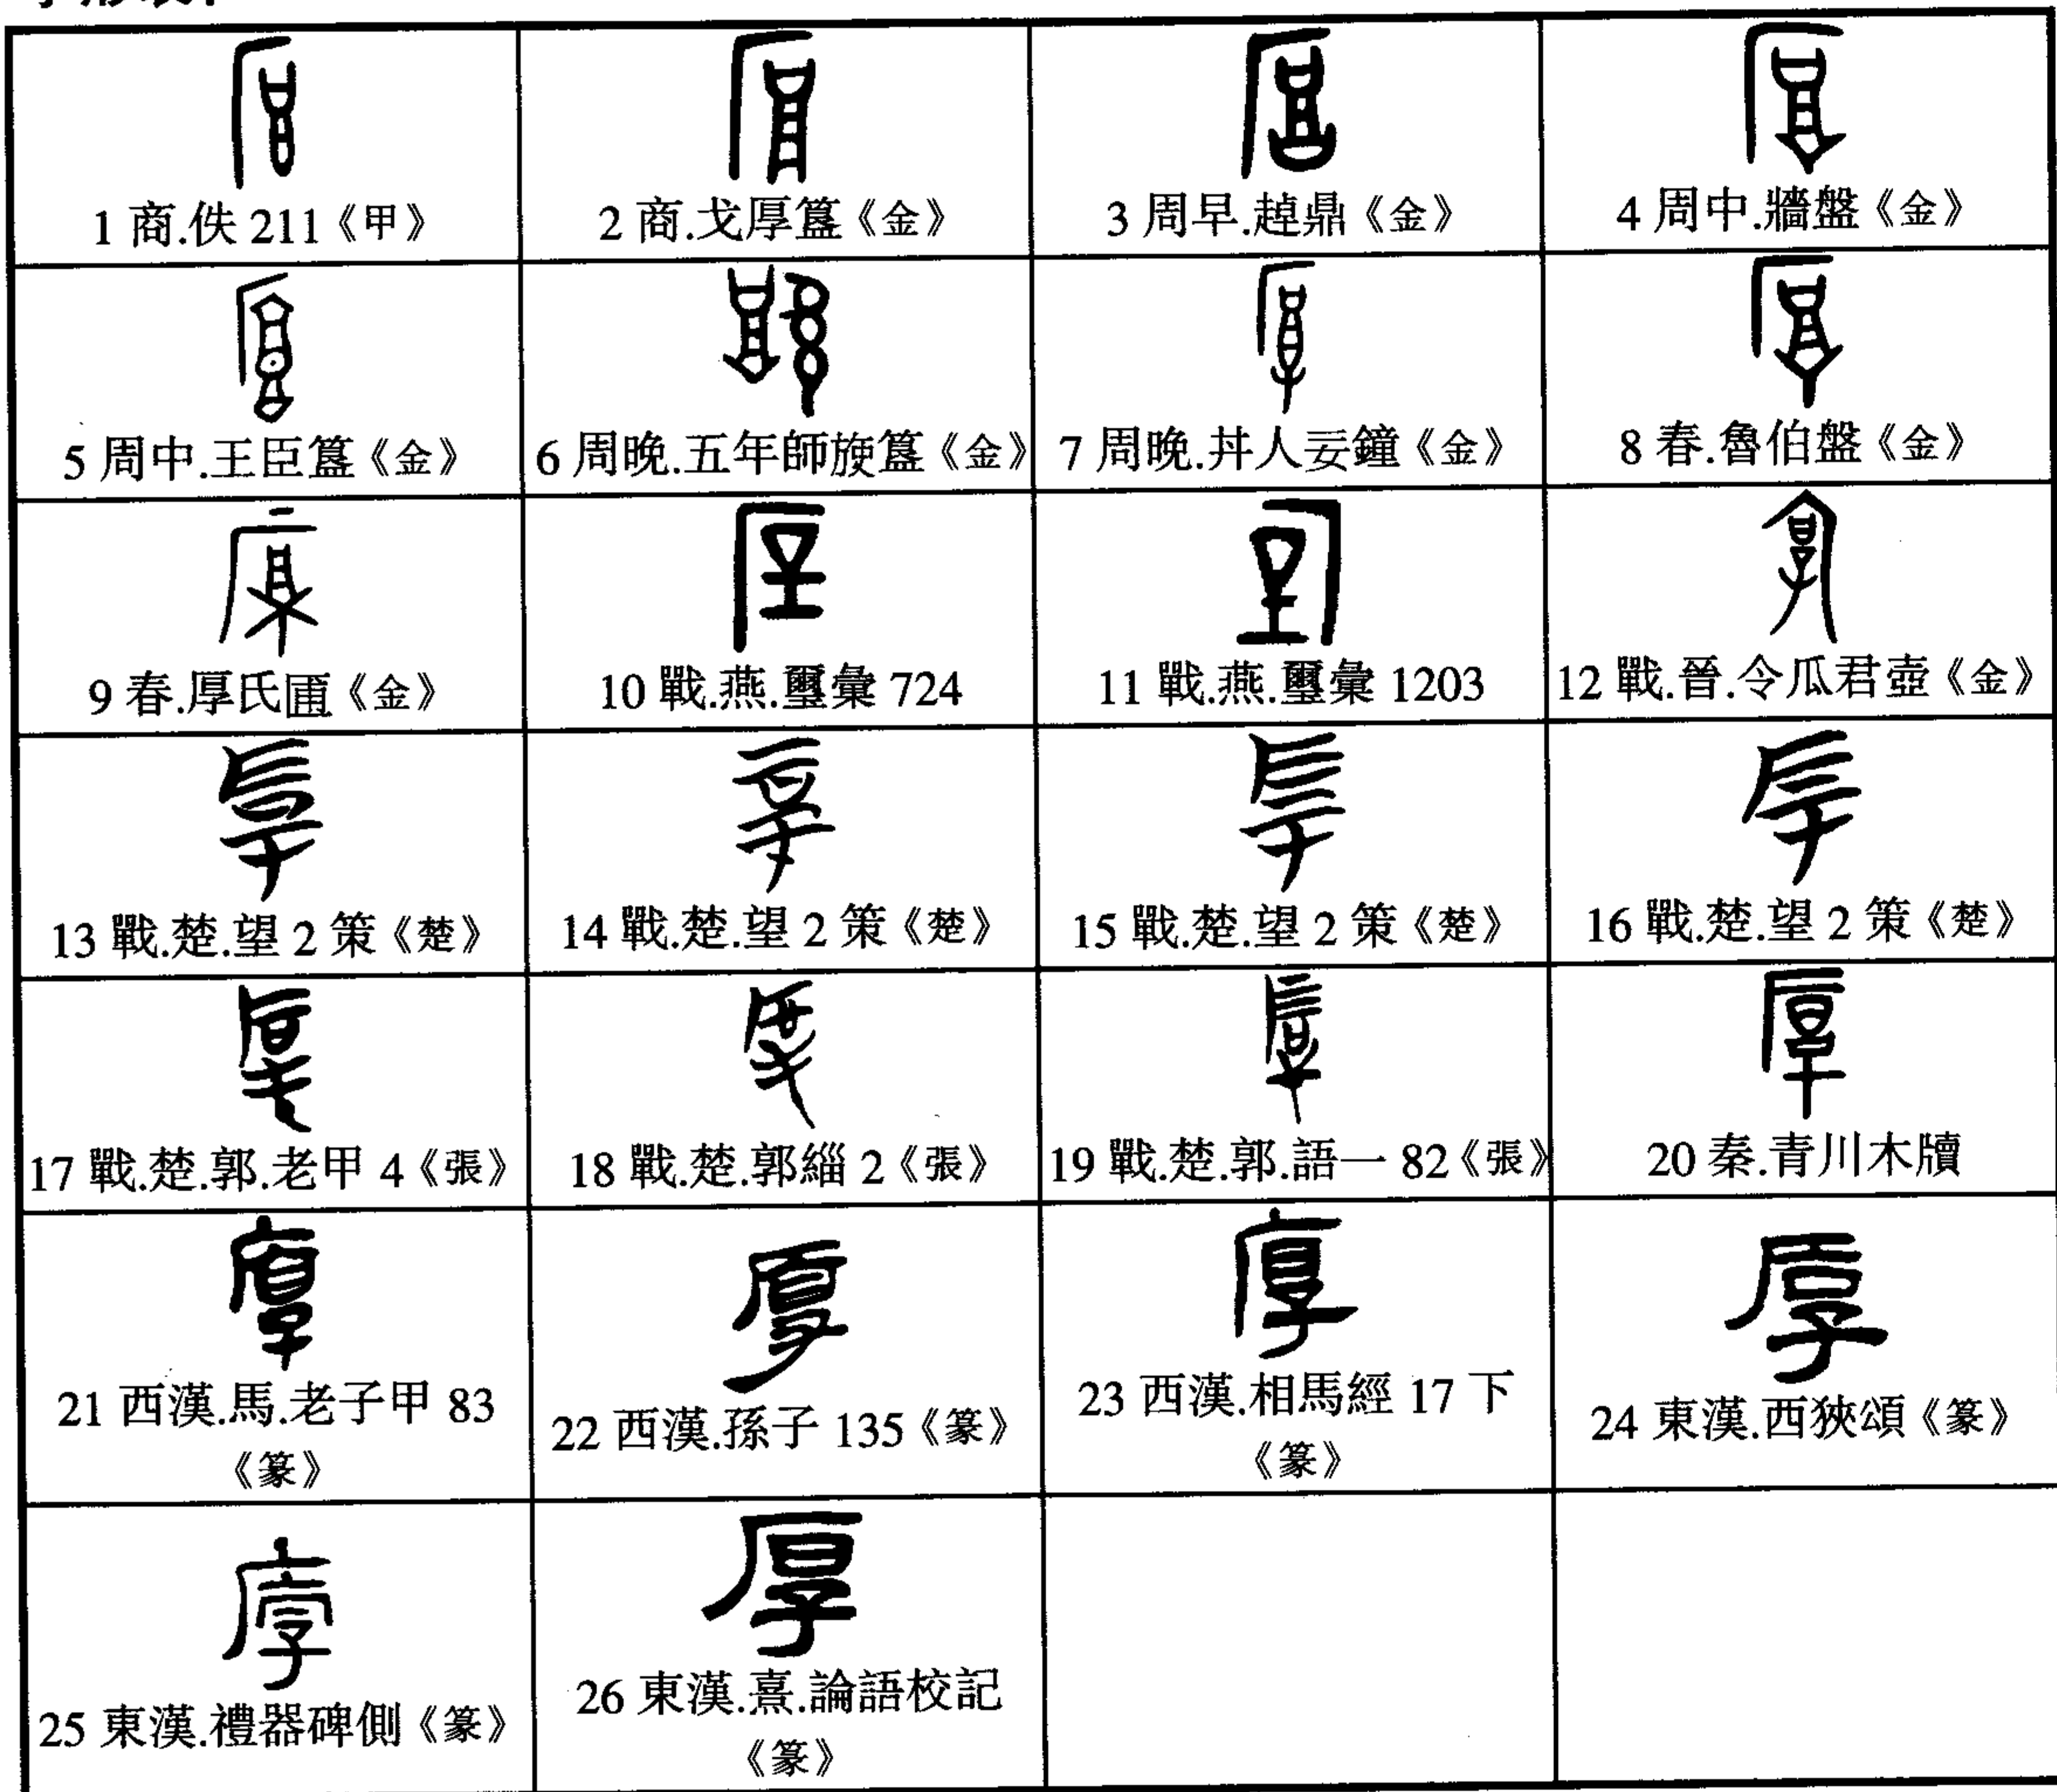 1 商.佚 211《甲》
2 商.戈厚簋《金》
3 周早.趠鼎《金》
4 周中.牆盤《金》
5 周中.王臣簋《金》
6 周晚.五年師旋簋《金》
7 周晚.丼人妄鐘《金》
8 春.魯伯盤《金》
9 春.厚氏圃《金》
10 戰.燕.璽彙 724
11 戰.燕.璽彙 1203
12 戰.晉.令瓜君壺《金》
13 戰.楚.望 2 策《楚》
14 戰.楚.望 2 策《楚》
15 戰.楚.望 2 策《楚》
16 戰.楚.望 2 策《楚》
17 戰.楚.郭.老甲 4《張》
18 戰.楚.郭緇 2《張》
19 戰.楚.郭.語一 82《張》
20 秦.青川木牘
21 西漢.馬.老子甲 83
《篆》
22 西漢.孫子 135《篆》
23 西漢.相馬經 17 下
《篆》
24 東漢.西狹頌《篆》
25 東漢.禮器碑側《篆》
26 東漢.熹.論語校記
《篆》